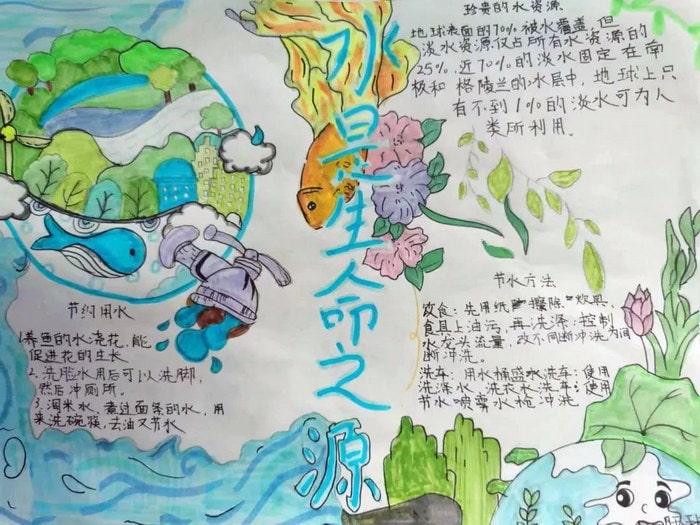 珍贵的水资源
地球表面的70%被水覆盖,但
淡水资源仅占所有水资源的
25%,近70%的淡水固定在南
极和格陵兰的冰层中,地球上只
有不到1%的淡水可为人
类所利用。
水是生命之源
节约用水
1.养鱼的水浇花,能
促进花的生长
2.洗脸水用后可以洗脚,
然后冲厕所。
3.淘米水,煮过面条的水,用
来洗碗筷,去油又节水
节水方法
饮食:先用纸擦除炊具,
食具上油污,再洗涤;控制
水龙头流量,改不间断冲洗为间
断冲洗。
洗车:用水桶盛水洗车;使用
洗涤水、洗衣水洗车;使用
节水喷雾水枪冲洗